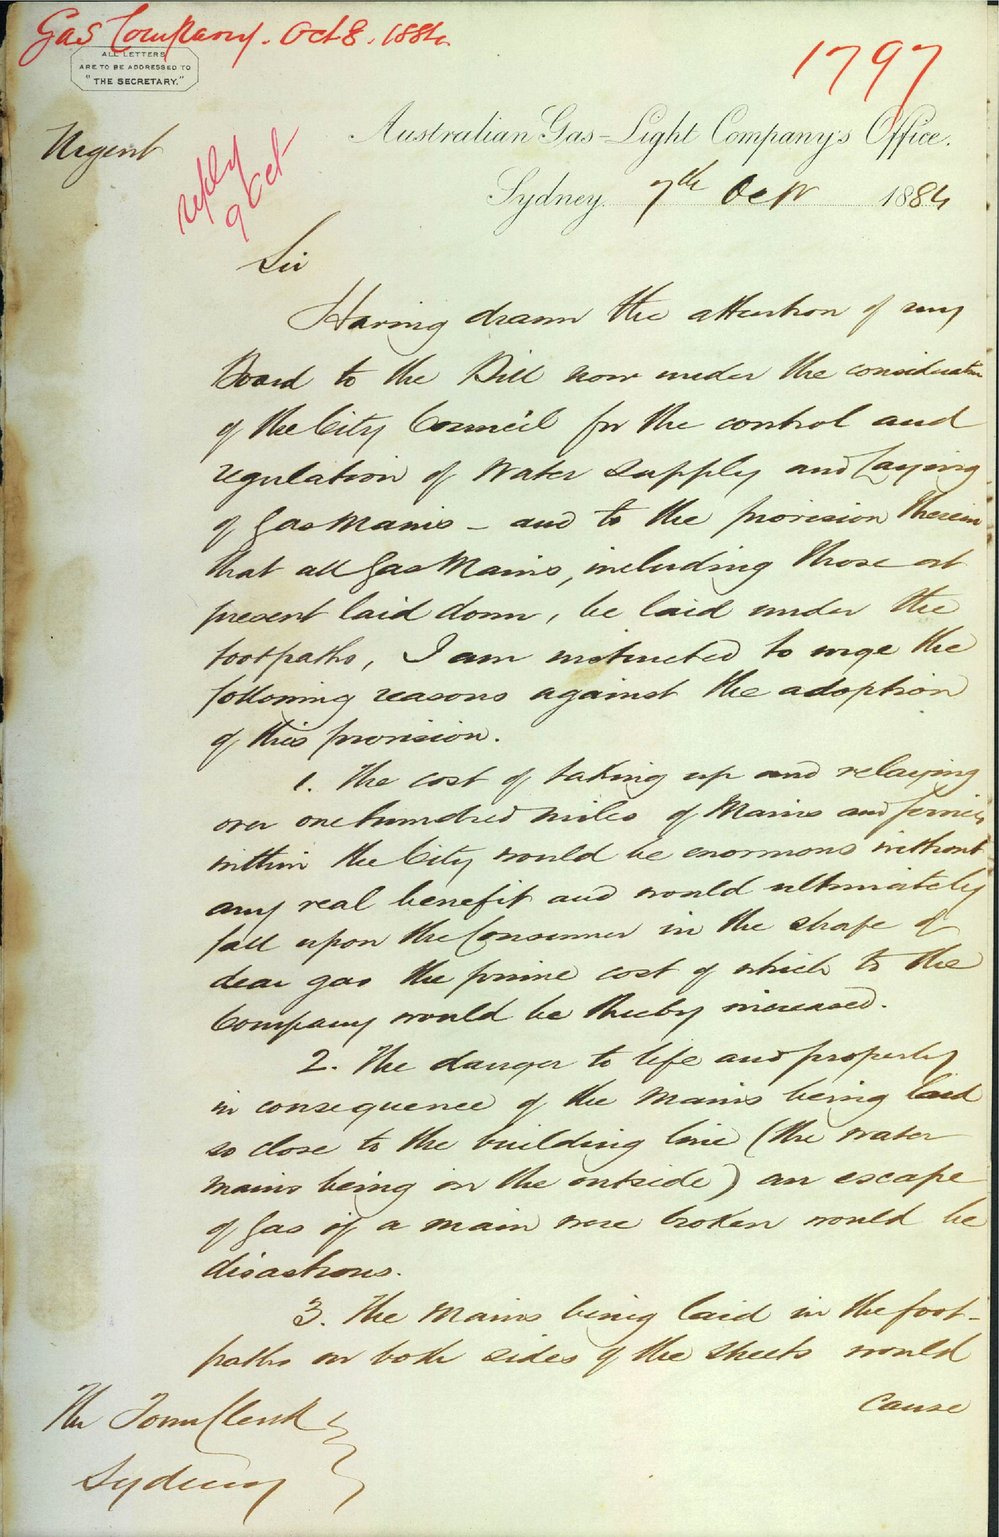 Gas Company. Oct 8. 1884
1797
ALL LETTERS
ARE TO BE ADDRESSED TO
"THE SECRETARY."
Urgent
reply
9 Oct
Australian Gas-Light Company's Office.
Sydney. 7th Octr 1884
Sir
Having drawn the attention of my
Board to the Bill now under the consideration
of the City Council for the control and
regulation of Water supply and laying
of Gas Mains - and to the provision therein
that all Gas Mains, including those at
present laid down, be laid under the
footpaths, I am instructed to urge the
following reasons against the adoption
of this provision.
1. The cost of taking up and relaying
over one hundred miles of Mains and services
within the City would be enormous without
any real benefit and would ultimately
fall upon the Consumer in the shape of
dear gas the prime cost of which to the
Company would be thereby increased.
2. The danger to life and property
in consequence of the Mains being laid
so close to the building line (the water
mains being on the outside) an escape
of Gas if a main were broken would be
disastrous.
3. The Mains being laid in the foot-
paths on both sides of the streets would
cause
The Town Clerk
Sydney